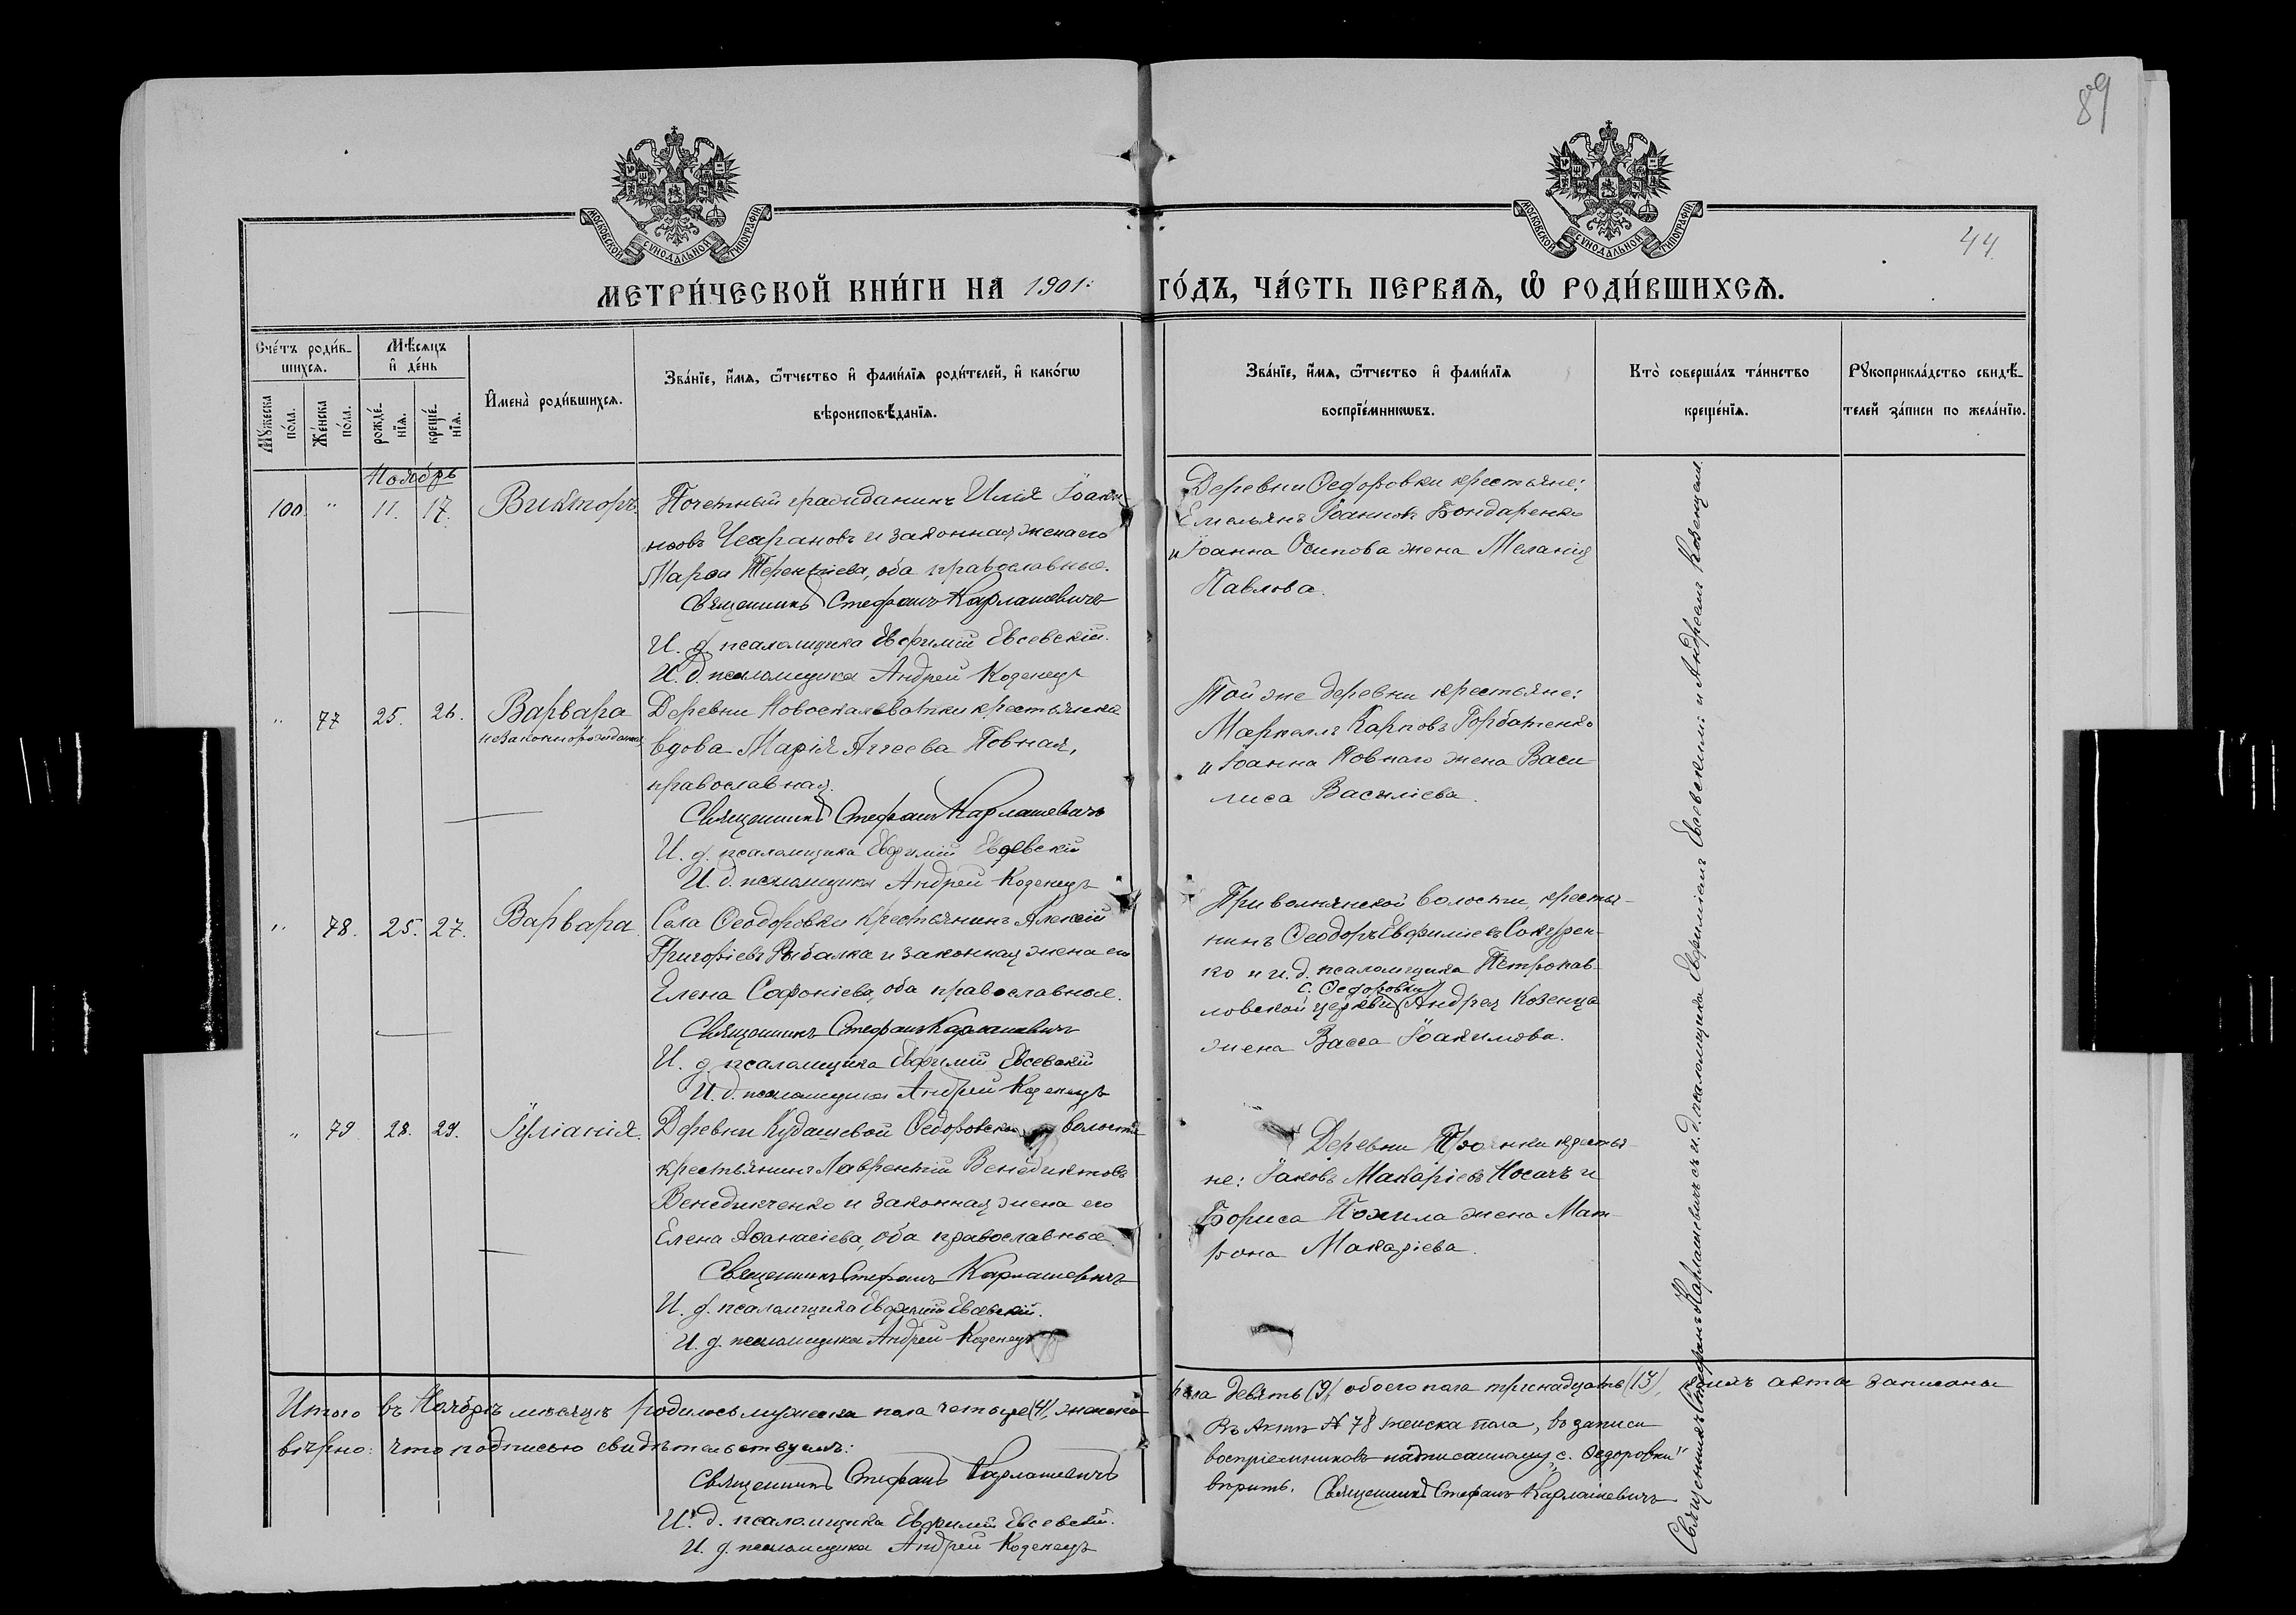 89
МОСКОВСКОЙ СѴНОДАЛЬНОЙ ТИПОГРАФІИ
МОСКОВСКОЙ СѴНОДАЛЬНОЙ ТИПОГРАФІИ
44.
МЕТРИ́ЧЕСКОЙ КНИ́ГИ НА 1901: ГО́ДЪ, ЧА́СТЬ ПЕРВАѦ, Ѡ҆ РОДИ́ВШИХСѦ.
Сче́тъ роди́в-
шихсѧ.
Мꙋжеска
по́ла.
Же́нска
по́ла.
Мѣ́сѧцъ
и҆ де́нь
рожде́-
нїѧ.
креще́-
нїѧ.
И҆мена̀ роди́вшихсѧ.
Зва́нїе, и҆́мѧ, ѻ҆́тчество и҆ фами́лїѧ роди́телей, и҆ како́гѡ
вѣроисповѣ́данїѧ.
Зва́нїе, и҆́мѧ, ѻ҆́тчество и҆ фами́лїѧ
воспрїе́мникѡвъ.
Кто̀ соверша́лъ та́инство
креще́нїѧ.
Рꙋкоприкла́дство свидѣ́-
телей за́писи по жела́нїю.
Ноябрь
100. " 11. 17. Викторъ.
Почетный гражданинъ Илія Іоаки
новъ и законная жена его
Марѳа Терентіева, оба православные.
Священникъ Стефанъ Карлашевичъ
И. д. псаломщика Евфимій Евсевскій.
И. д. псаломщика Андрей Козенецъ
Деревни Ѳеодоровки крестьяне:
Емельянъ Іоанновъ Бондаренко
и Іоанна Осипова жена Меланія
Павлова.
" 77 25. 26. Варвара
незаконнорожданная
Деревни крестьянка
вдова Марія Аггеева Повная,
православная.
Священникъ Стефанъ Карлашевичъ
И. д. псаломщика Евфимій Евсевскій
И. д. псаломщика Андрей Козенецъ
Той же деревни крестьяне:
Маркеллъ Карповъ Горбатенко
и Іоанна Повнаго жена Васи-
лиса Василіева.
" 78. 25. 27. Варвара.
Села Ѳеодоровки крестьянинъ Алексій
Григоріевъ Рыбалка и законная жена его
Елена Софоніева, оба православные.
Священникъ Стефанъ Карлашевичъ
И. д. псаломщика Евфимій Евсевскій
И. д. псаломщика Андрей Козенецъ
Привольнянской волости, крестья-
нинъ Ѳеодоръ Евфиміевъ Сокурен-
ко и и. д. псаломщика Петропав-
с. Ѳедоровки
ловской церкви Андрея Козенца
жена Васса Іоакимова.
" 79. 28. 29. Іуліанія.
Деревни Кудашевой Ѳедоровской волости
крестьянинъ Лаврентій Венедиктовъ
Венедикченко и законная жена его
Елена Аѳанасіева, оба православные.
Священникъ Стефанъ Карлашевичъ
И. д. псаломщика Евфимій Евсевскій.
И. д. псаломщика Андрей Козенецъ
Деревни крестья-
не: Іаковъ Макаріевъ Носачъ и
Бориса Похила жена Мат-
рона Макаріева.
Священникъ Стефанъ Карлашевичъ съ и. д. псаломщика Евфиміемъ Евсевскимъ и Андреемъ Козенцемъ.
Итого въ Ноябрѣ мѣсяцѣ родилось мужеска пола четыре (4), женска пола девять (9), обоего пола тринадцать (13), коихъ акты записаны
вѣрно: что подписью свидѣтельствуемъ:
Священникъ Стефанъ Карлашевичъ
И. д. псаломщика Евфимій Евсевскій.
И. д. псаломщика Андрей Козенецъ
Въ Актѣ № 78 женска пола, въ записи
воспріемниковъ надписанному „с. Ѳедоровки"
вѣрить. Священникъ Стефанъ Карлашевичъ